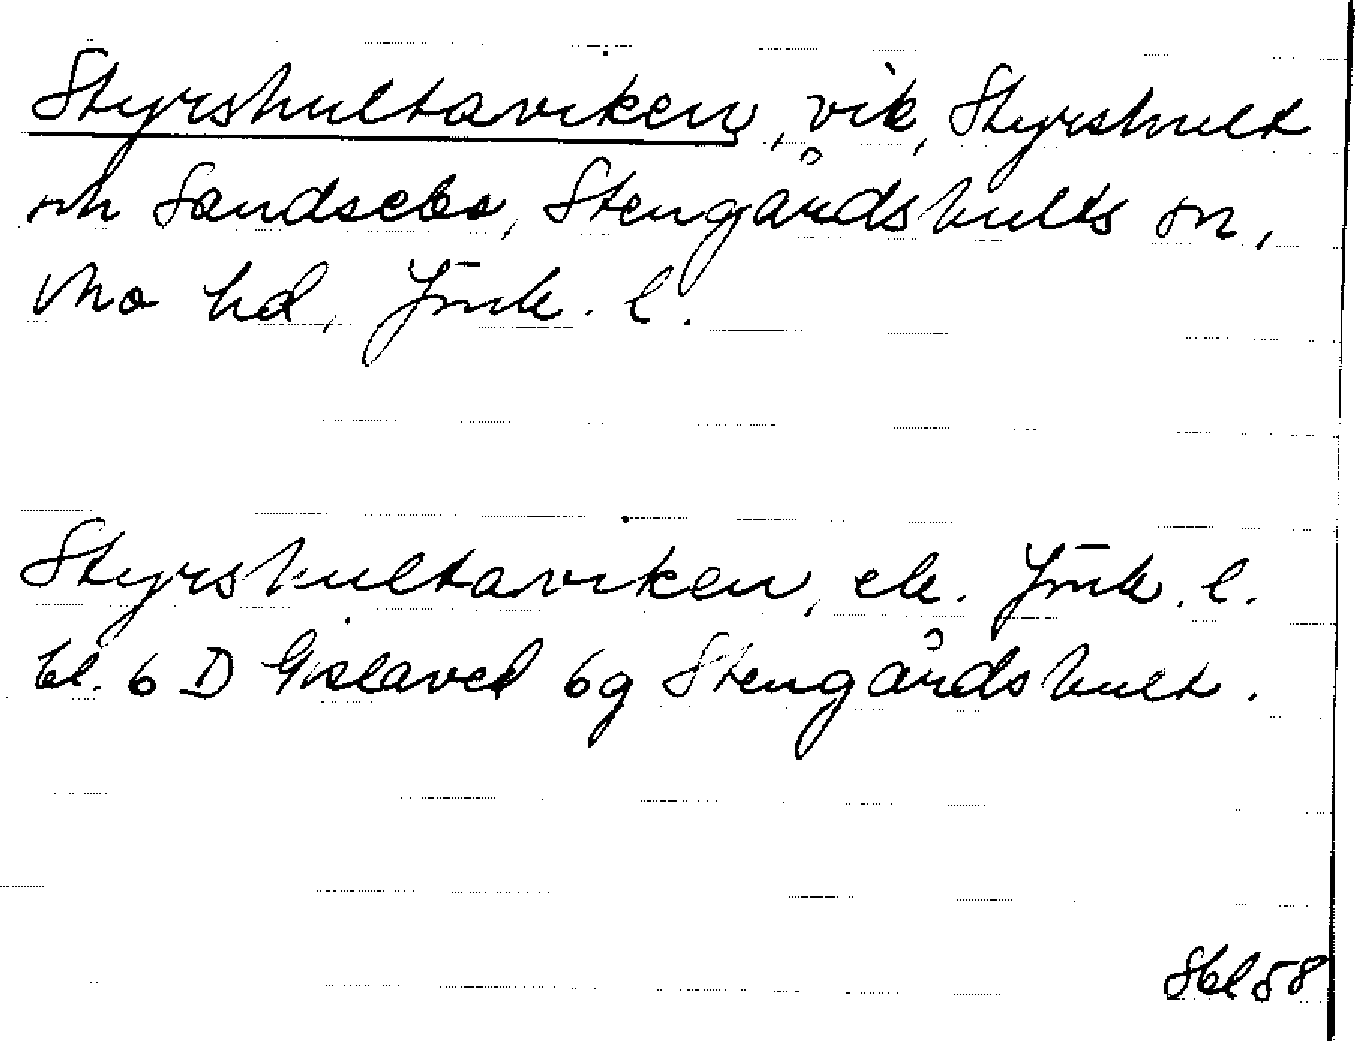 Styrshultaviken, vik, Styrshult
och Sandsebo, Stengårdshults sn,
Mo hd, Jönk. l.
Styrshultaviken, ek. Jönk. l.
bl. 6 D Gislaved 6g Stengårdshult.
Sbl 58